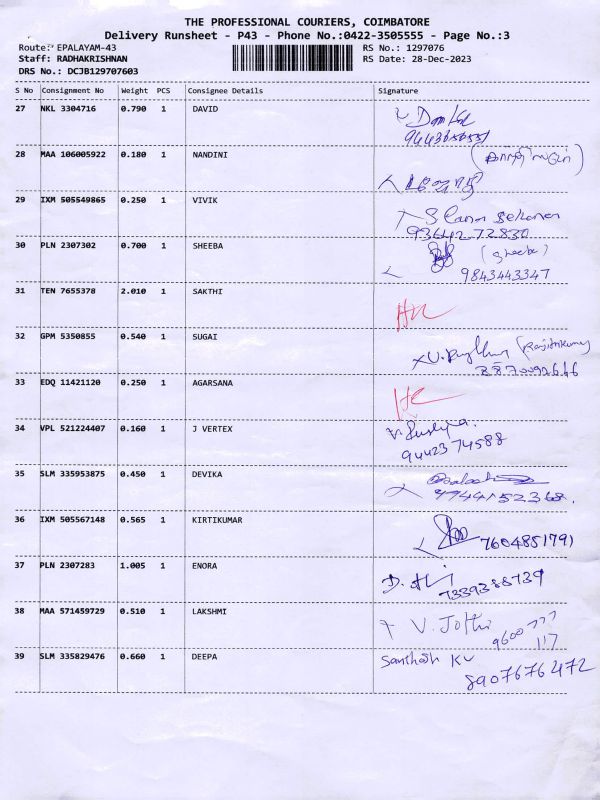 THE PROFESSIONAL COURIERS, COIMBATORE
Delivery Runsheet - P43 - Phone No.:0422-3505555 - Page No.:3
Route: EPALAYAM-43 RS No.: 1297076
Staff: RADHAKRISHNAN RS Date: 28-Dec-2023
DRS No.: DCJB129707603
S No Consignment No Weight PCS Consignee Details Signature
27 NKL 3304716 0.790 1 DAVID
28 MAA 106005922 0.180 1 NANDINI
29 IXM 505549865 0.250 1 VIVIK
9364272830
30 PLN 2307302 0.700 1 SHEEBA (Sheeba)
9843443347
31 TEN 7655378 2.010 1 SAKTHI
32 GPM 5350855 0.540 1 SUGAI
33 EDQ 11421120 0.250 1 AGARSANA
34 VPL 521224407 0.160 1 J VERTEX
9442374588
35 SLM 335953875 0.450 1 DEVIKA
36 IXM 505567148 0.565 1 KIRTIKUMAR
7604851791
37 PLN 2307283 1.005 1 ENORA
7339388739
38 MAA 571459729 0.510 1 LAKSHMI V. Jothi
9600 777
117
39 SLM 335829476 0.660 1 DEEPA Santhosh KV
8907676472